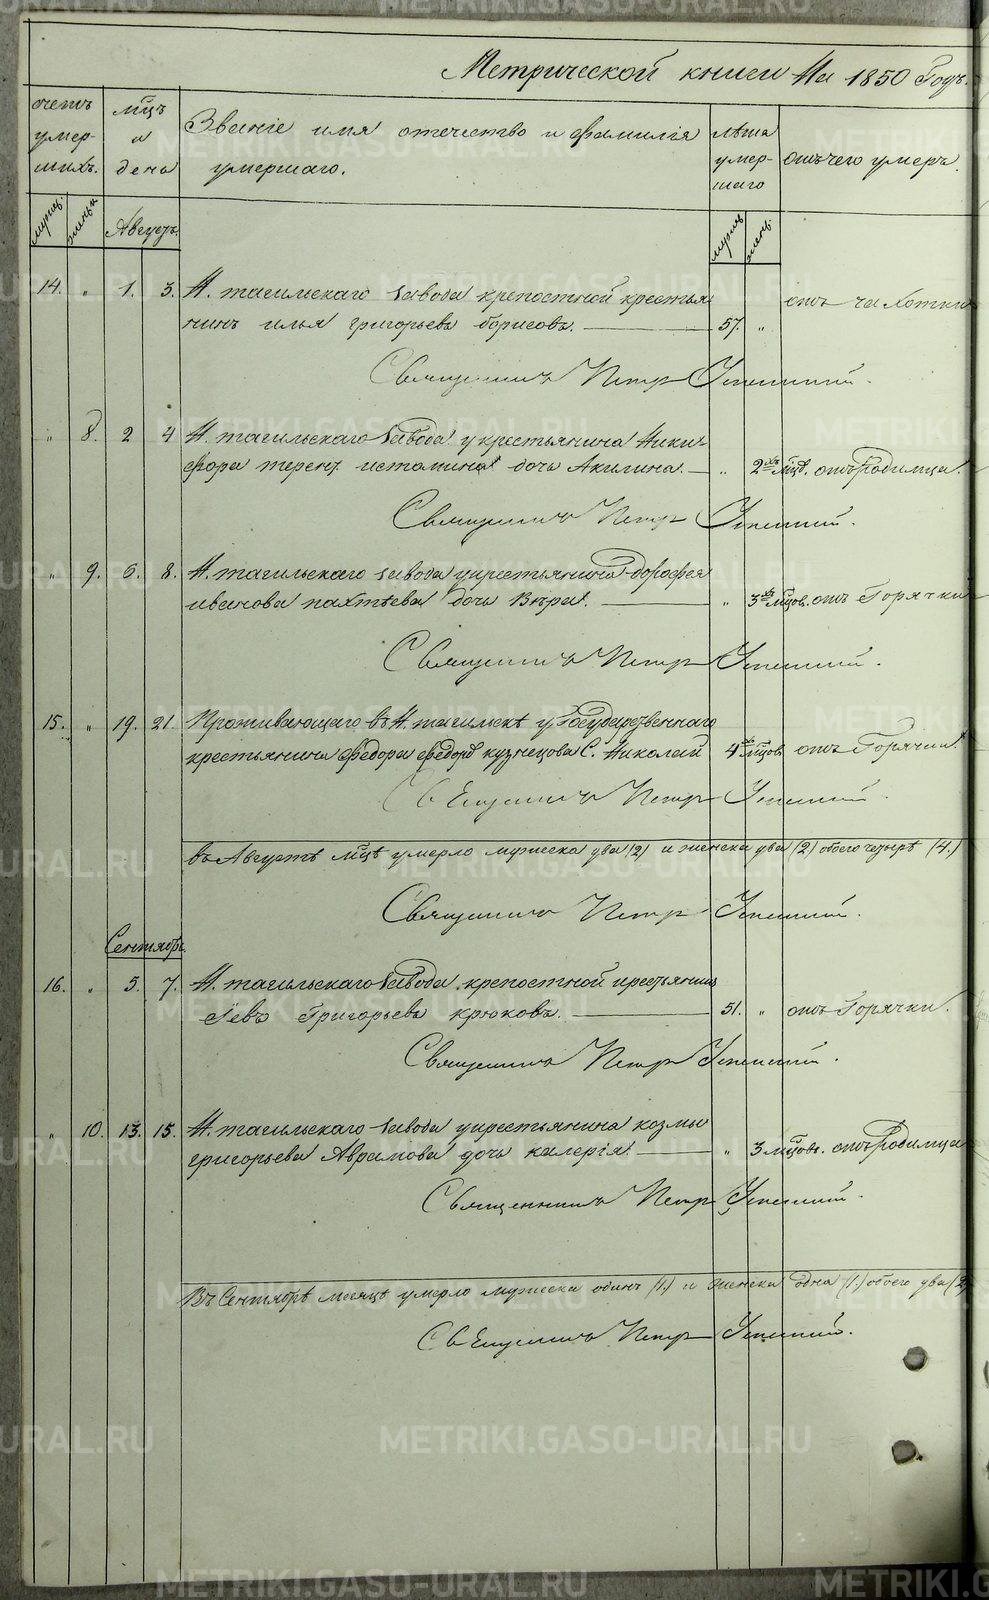 Метрической книги На 1850 Годъ.
счетъ умерших. мцъ и день Званіе имя отечество и фамилія умершаго. лѣта умершаго отъ чего умеръ.
мужск. женск. Августъ. мужск. женск.
14. " 1. 3. Н. тагильскаго завода крепостной крестья
нинъ илья григорьевъ борисовъ. 57. " отъ чахотки
Священникъ Петръ
" 8. 2 4 Н. тагильскаго завода у крестьянина Ники-
фора терент. истомина дочь Акилина. " 2хъ мцв. отъ Родимца.
Священникъ Петръ
" 9. 6. 8. Н. тагильскаго завода у крестьянина дорофея
иванова пахтѣева дочь Вѣра. " 3хъ мцов. отъ Горячки
Священникъ Петръ
15. " 19. 21. Проживающаго въ Н. тагильскѣ у Государственнаго
крестьянина Федора Федоров кузнецова С. Николай 4хъ мцов отъ Горячки.
Священникъ Петръ
въ Августѣ мцѣ умерло мужеска два (2) и женска два (2) обоего четырѣ (4.)
Священникъ Петръ
Сентябрь.
16. " 5. 7. Н. тагильскаго завода крепостной крестьянинъ
Левъ Григорьевъ крюковъ. 51. " отъ Горячки.
Священникъ Петръ
" 10. 13. 15. Н. тагильскаго завода у крестьянина козмы
григорьева Аврамова дочь калерія. " 3 мцовъ. отъ Родимца
Священникъ Петръ
Въ Сентябрѣ месяцѣ умерло мужеска одинъ (1.) и женска одна (1.) обоего два (2)
Священникъ Петръ
METRIKI.GASO-URAL.RU